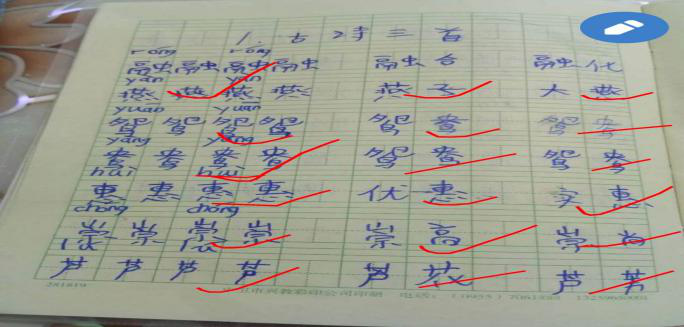 1. 古诗三首
róng róng
融融融融 融合 融化
yàn yàn
燕燕燕燕 燕子 大燕
yuān yuān
鸳鸳鸳鸳 鸳鸯 鸳鸯
yāng yāng
鸯鸯鸯鸯 鸳鸯 鸳鸯
huì huì
惠惠惠惠 优惠 实惠
chóng chóng
崇崇崇崇 崇高 崇尚
lú lú
芦芦芦芦 芦花 芦苇
281819